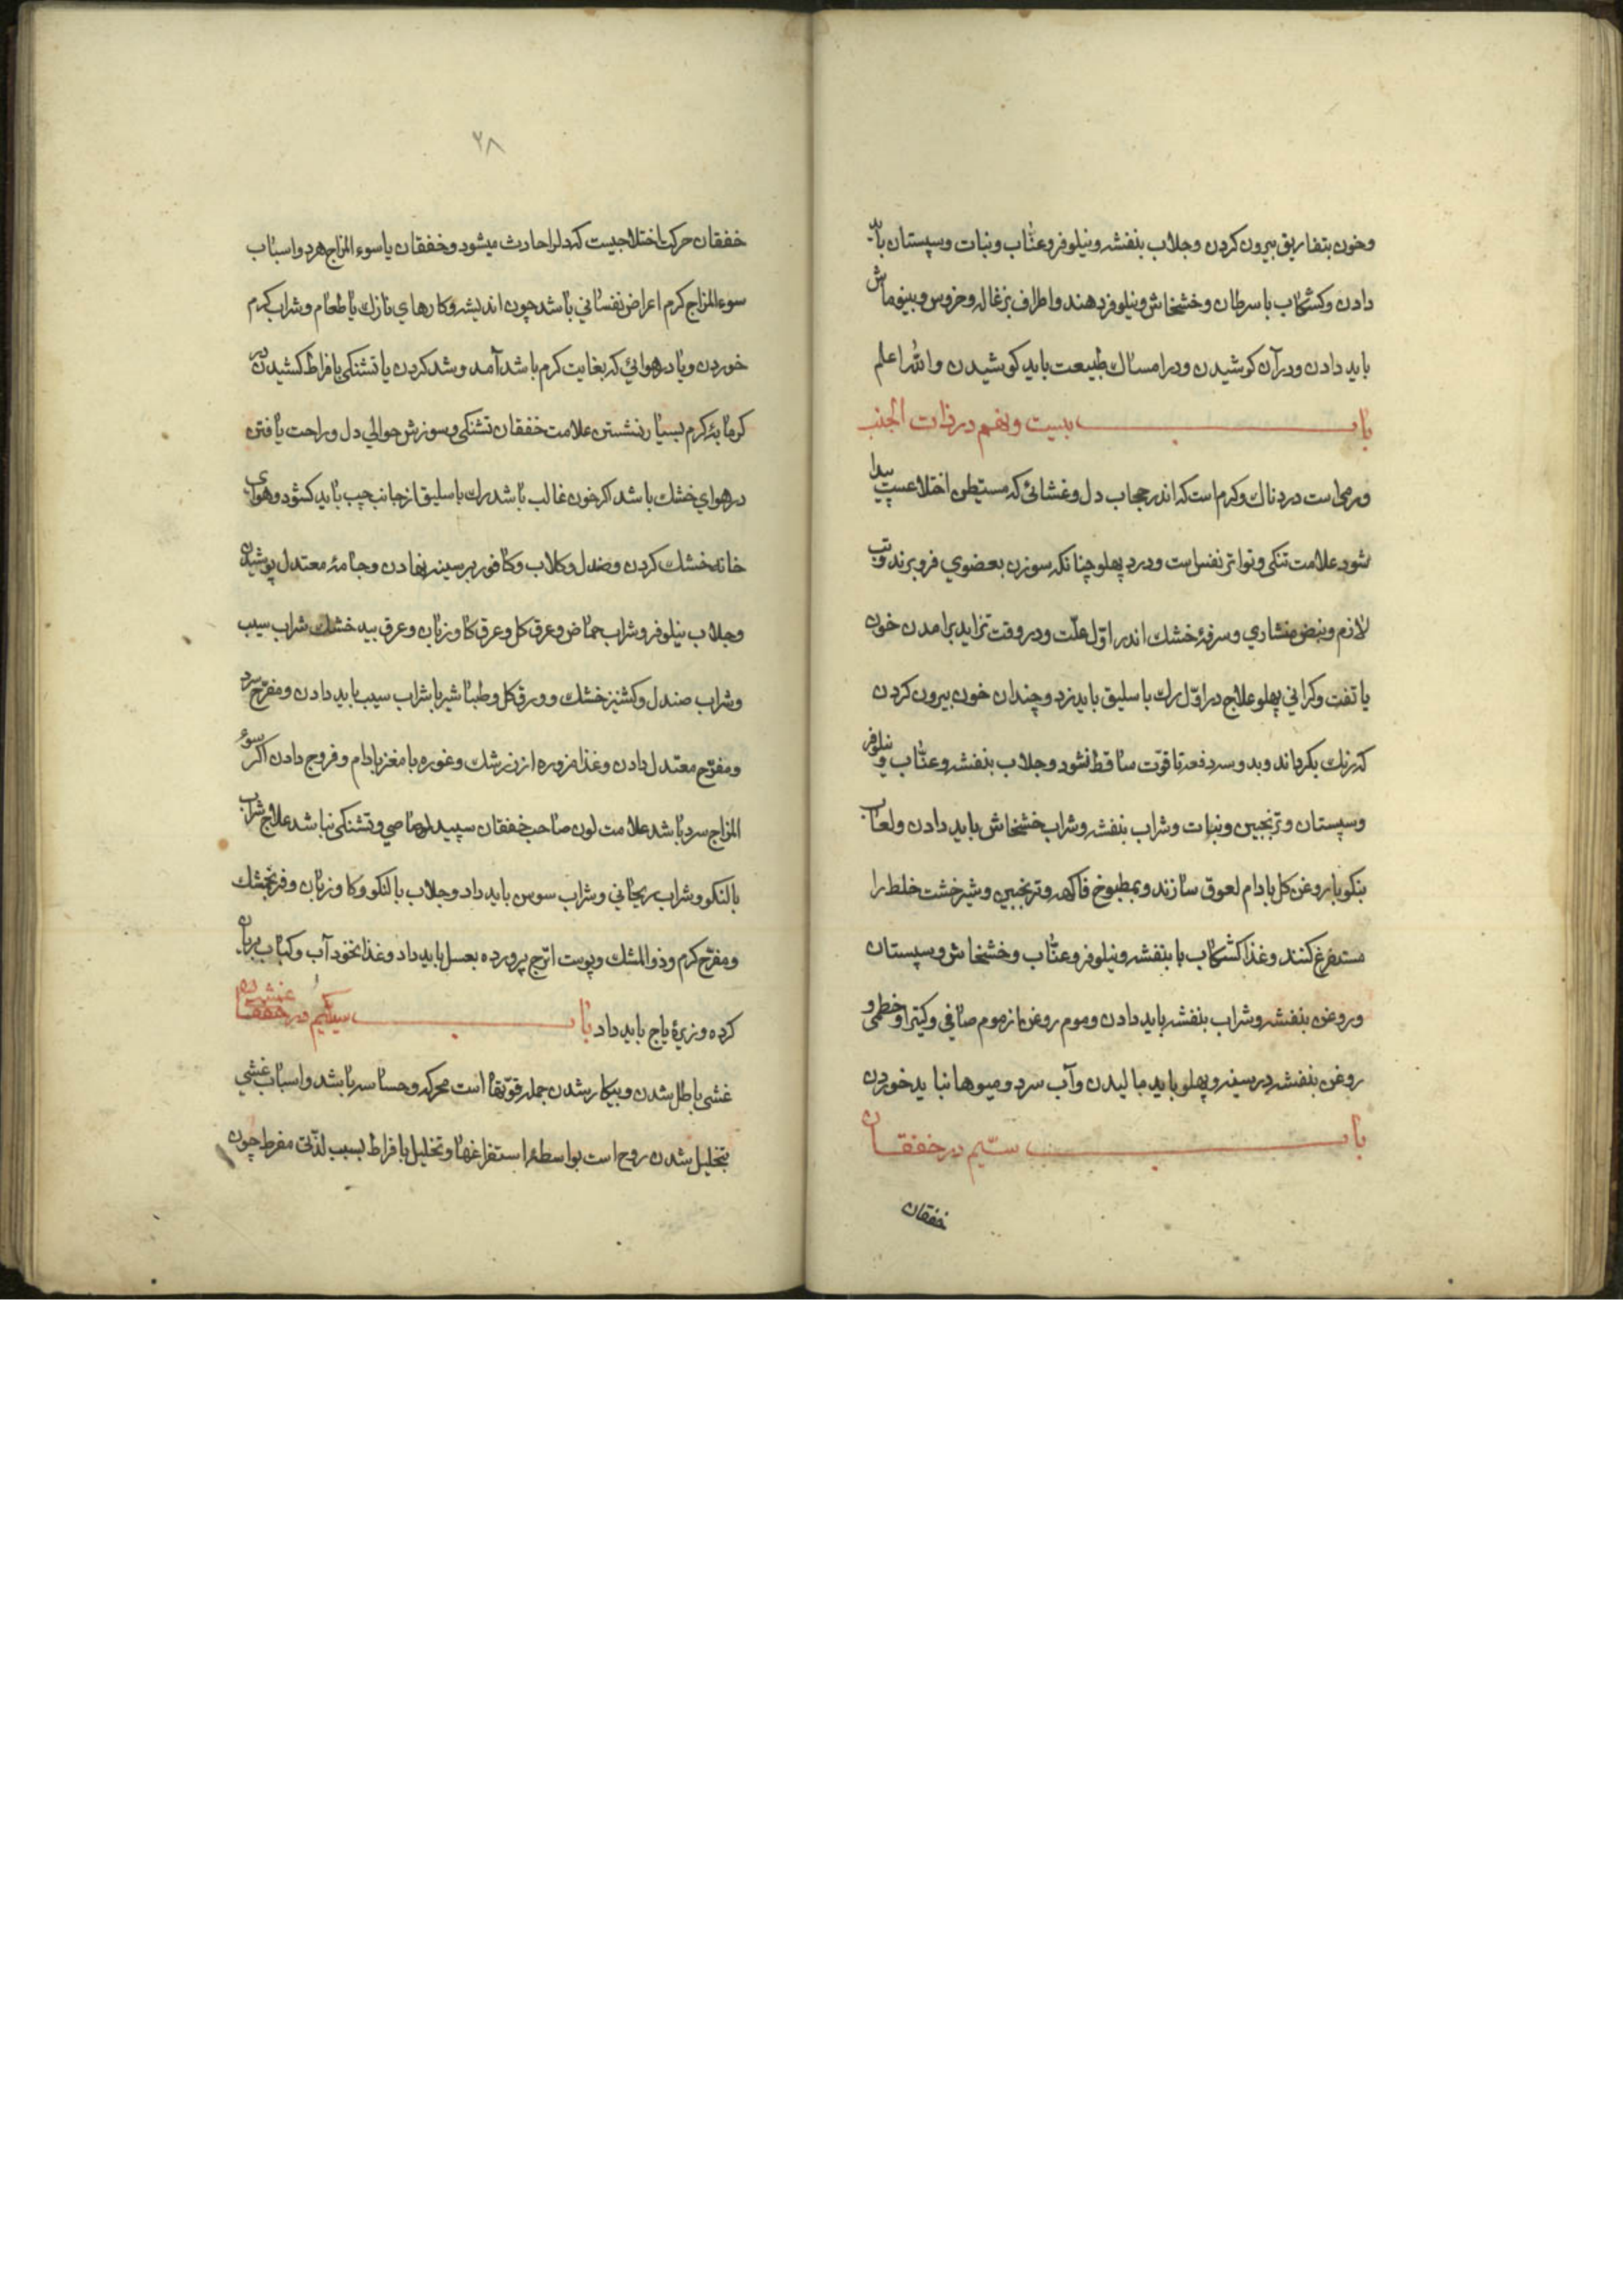 وخون بتفاریق بیرون کردن وجلاب بنفشه ونیلوفر وعنّاب ونبات وسپستان باید
دادن وکشکاب با سرطان وخشخاش ونیلوفر دهند واطراف بزغاله وخروس وبینو ماش
باید دادن ودر آن کوشیدن ودر امساك طبیعت باید کوشیدن والله اعلم
باب بیست ونهم در ذات الجنب
ورمی است دردناك وکرم است که اندر حجاب دل وغشائی که مستبطن اضلاعست پیدا
شود علامت تنکی وتواتر نفس است ودرد پهلو چنانکه سوزن بعضوي فرو برند وتب
لازم ونبض منشاري وسرفهٔ خشك اندر اوّل علّت ودر وقت تزاید برامدن خون
یا تفت وکراني پهلو علاج در اوّل رك باسلیق باید زد وچندان خون بیرون کردن
که رنك بکرداند وبدو سه دفعه تا قوّت ساقط نشود وجلاب بنفشه وعنّاب ونیلوفر
وسپستان وترنجبین ونبات وشراب بنفشه وشراب خشخاش باید دادن ولعاب
بنکو با روغن کل بادام لعوق سازند وبمطبوخ فاکهه وترنجبین وشیرخشت خلط را
مستفرغ کنند وغذا کشکاب با بنفشه ونیلوفر وعنّاب وخشخاش وسپستان
وروغن بنفشه وشراب بنفشه باید دادن وموم روغن از موم صافي وکتیرا وخطمی و
روغن بنفشه در سینه وپهلو باید مالیدن وآب سرد ومیوها نباید خوردن
باب سیّم در خفقان
خفقان
۲۸
خفقان حرکت اختلاجیست که دلرا حادث میشود وخفقان یا سوء المزاج هرد واسباب
سوء المزاج کرم اعراض نفساني باشد چون اندیشه وکارهاي نازك یا طعام وشراب کرم
خوردن ویا در هوائي که بغایت کرم باشد آمد وشد کردن یا تشنکی بافراط کشیدن در
کرمابهٔ کرم بسیار نشستن علامت خفقان تشنکی وسوزش حوالي دل وراحت یافتن
در هواي خشك باشد اکر خون غالب باشد رك باسلیق از جانب چپ باید کشود وهواي
خانه خشك کردن وصندل وکلاب وکافور بر سینه نهادن وجامهٔ معتدل پوشیدن
وجلاب نیلوفر وشراب حمّاض وعرق کل وعرق کاوزبان وعرق بید خشك شراب سیب
وشراب صندل وکشنیز خشك وورق کل وطباشیر با شراب سیب باید دادن ومفرّح سرد
ومفرّح معتدل دادن وغذا مزوره از زرشك وغوره با مغز بادام وفروج دادن اکر سوء
المزاج سرد باشد علامت لون صاحب خفقان سپید رصاصي وتشنکی نباشد علاج شراب
بالنکو وشراب ریحاني وشراب سوسن باید داد وجلاب بالنکو وکاوزبان وفرنجمشك
ومفرّح کرم وذوالمشك وپوست اترج پرورده بعسل باید داد وغذا نخود آب وکباب بریان
کرده وزیرهٔ باج باید داد باب سی ویکم در غشی
غشی باطل شدن وبیکار شدن جمله قوّتها است محرکه وحساسه باشد واسباب غشي
بتحلیل شدن روح است بواسطهٔ استفراغها وتحلیل بافراط بسبب لذّتي مفرط چون